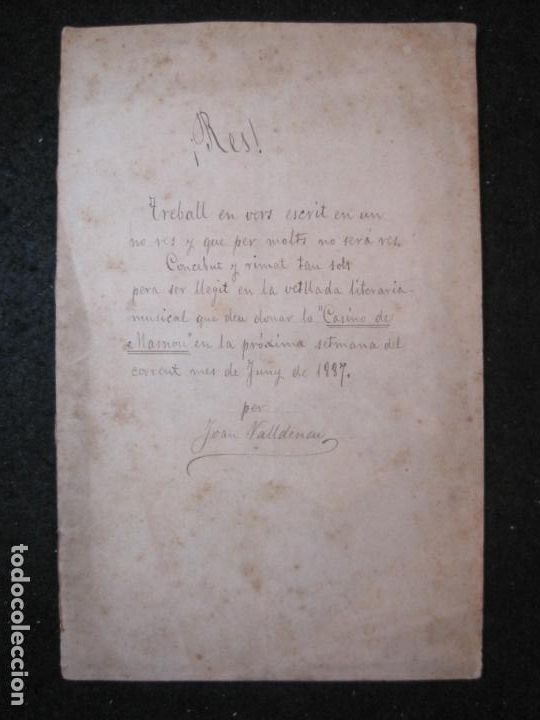 ¡Res!
Treball en vers escrit en un
no res y que per molts no será res.
Concebut y rimat tan sols
pera ser llegit en la vetllada literaria-
musical que deu donar lo "Casino de
Masnou" en la próxima setmana del
corrent mes de Juny de 1887.
per
Joan Valldenau
todocoleccion